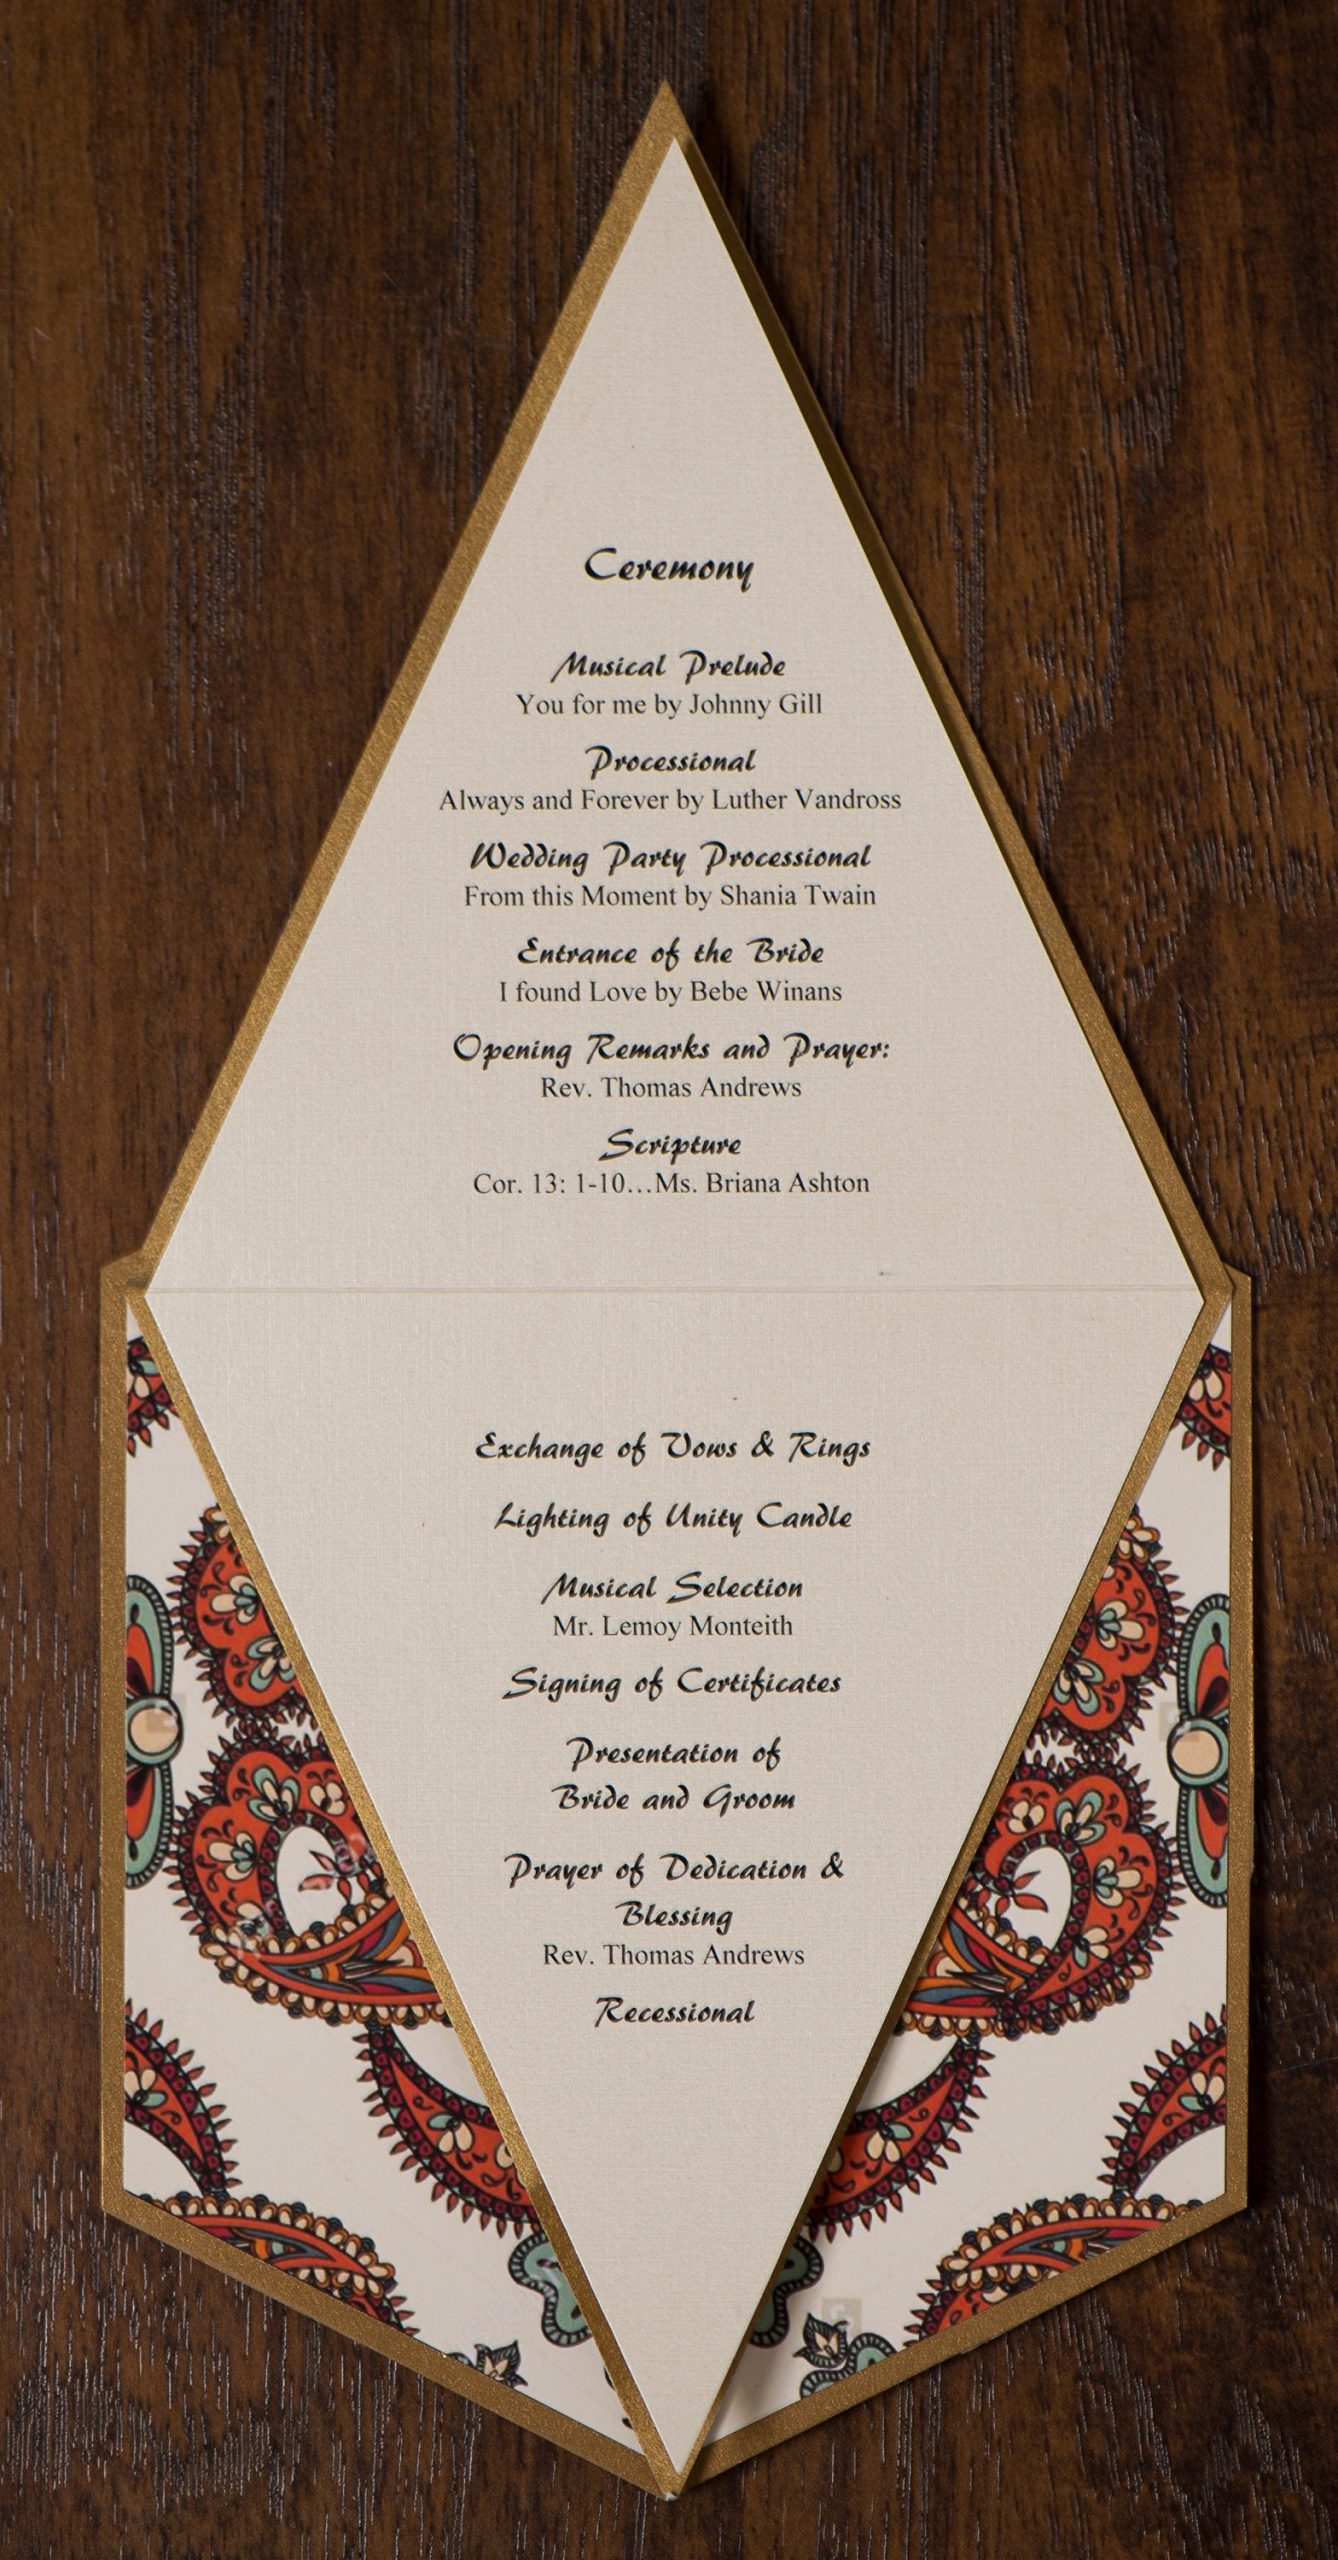 Ceremony
Musical Prelude
You for me by Johnny Gill
Processional
Always and Forever by Luther Vandross
Wedding Party Processional
From this Moment by Shania Twain
Entrance of the Bride
I found Love by Bebe Winans
Opening Remarks and Prayer:
Rev. Thomas Andrews
Scripture
Cor. 13: 1-10…Ms. Briana Ashton
Exchange of Vows & Rings
Lighting of Unity Candle
Musical Selection
Mr. Lemoy Monteith
Signing of Certificates
Presentation of
Bride and Groom
Prayer of Dedication &
Blessing
Rev. Thomas Andrews
Recessional